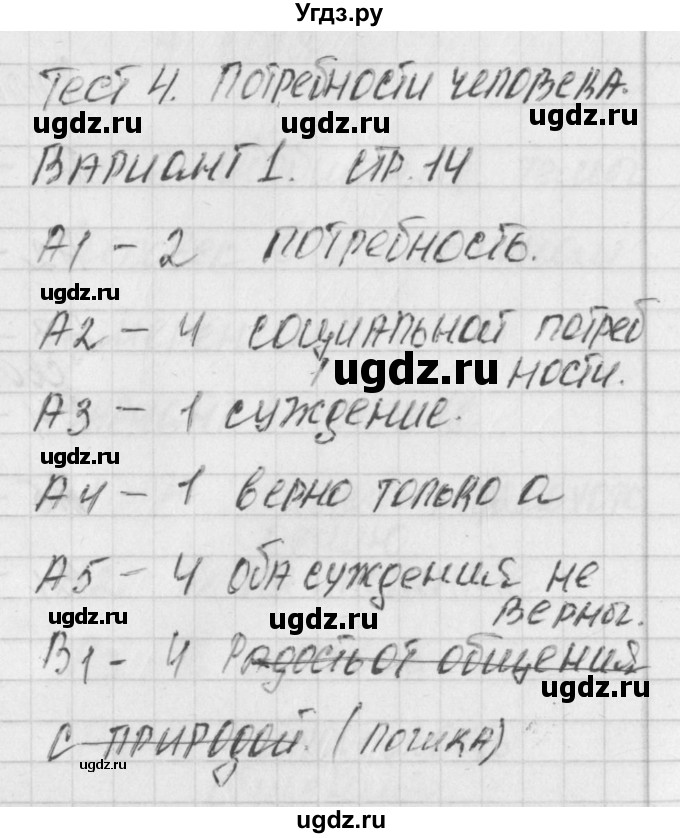 Угдз.ру
Тест 4. Потребности человека.
ugdz.ru ugdz.ru ugdz.ru
Вариант 1. стр. 14
А1 – 2 потребность.
ugdz.ru
А2 – 4 социальной потреб
ugdz.ru ности.
А3 – 1 суждение.
ugdz.ru
А4 – 1 верно только а
А5 – 4 оба суждения не
ugdz.ru ugdz.ru верны.
В1 – 4 Радость от общения
ugdz.ru
с природой. (логика)
ugdz.ru
ugdz.ru ugdz.ru ugdz.ru